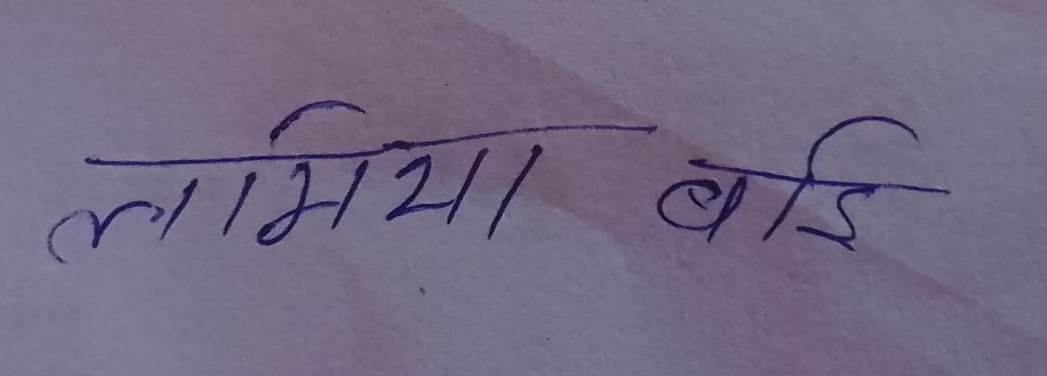 लामिया बाई